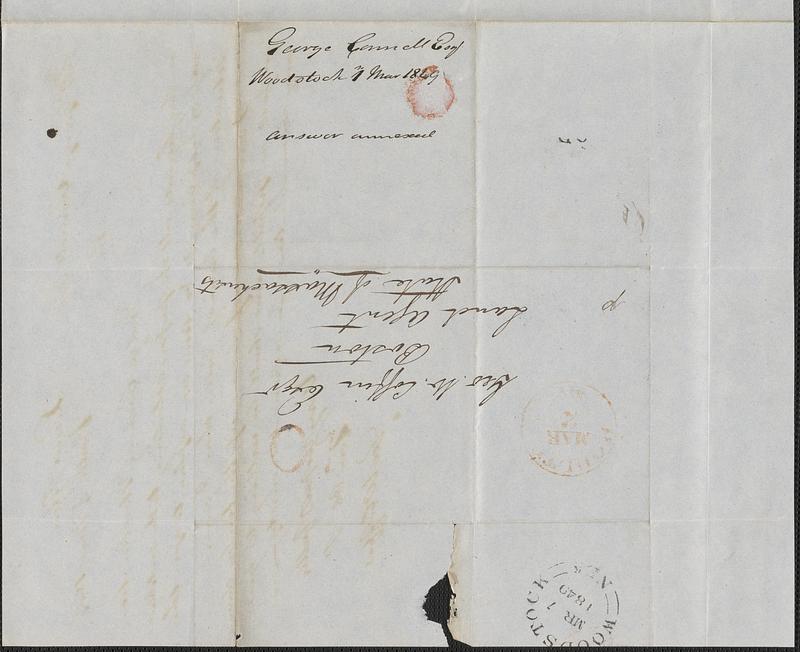 George Connell Esq
Woodstock 1 Mar 1849
answer annexed
Geo. W. Coffin Esqr
Boston
Land Agent
State of Massachusetts
MAR
WOODSTOCK
MR 1
1849
N.B.